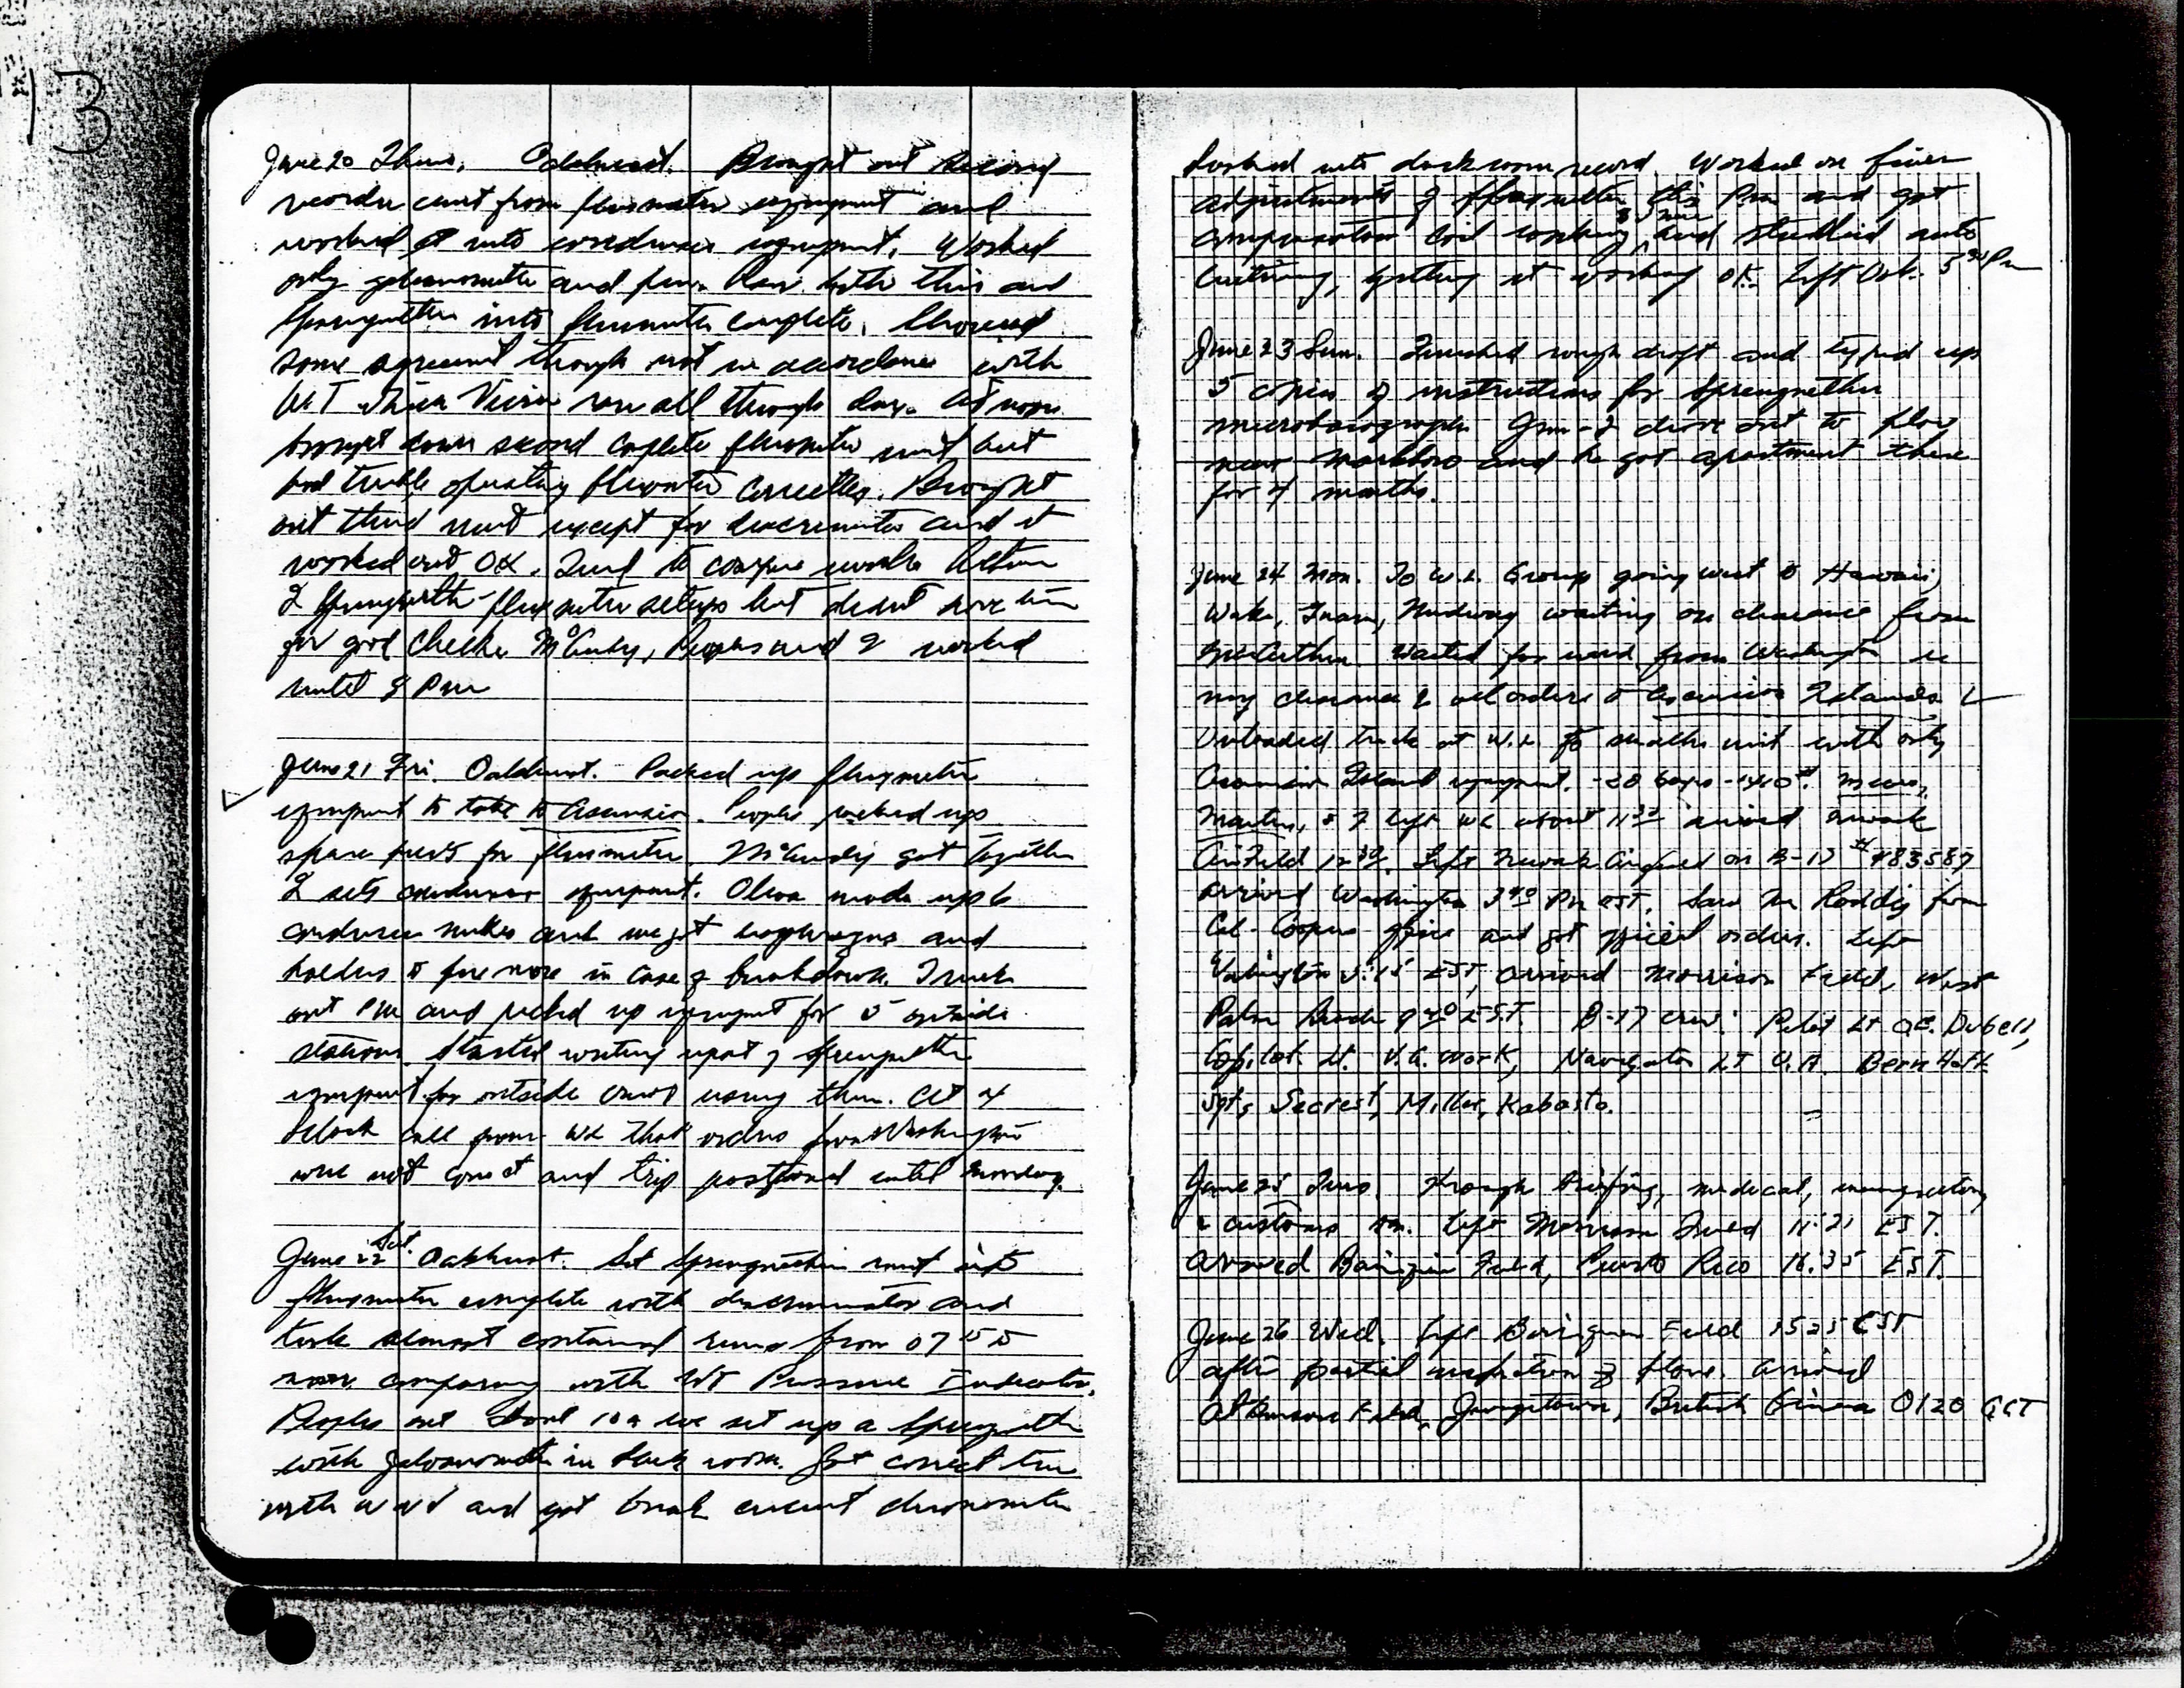 13
June 20 Thurs. Oakhurst. Brought out second
recorder unit from fluxmeter equipment and
worked it into condenser equipment. Worked
only galvanometer and pen. Ran both this and
Sprengnether into fluxmeter complete. Showed
some agreement though not in accordance with
WT which Vivian ran all through day. At noon
brought down second complete fluxmeter unit but
had trouble operating fluxmeter correctly. Brought
out third unit except for discriminator and it
worked out OK. Tried to compare results between
2 Sprengnether-fluxmeter setups but didn't have time
for good check. McCurdy, Peoples and I worked
until 8 PM
June 21 Fri. Oakhurst. Packed up fluxmeter
equipment to take to Ascension. Peoples packed up
spare parts for fluxmeter. McCurdy got together
2 sets condenser equipment. Oliva made up 6
condenser mikes and we got diaphragms and
holders for five more in case of breakdown. Truck
out PM and picked up equipment for 5 outside
stations. Started writing report of Sprengnether
equipment for outside crews using them. At 4
o'clock call from WL that orders from Washington
were not correct and trip postponed until Monday.
June 22 Sat. Oakhurst. Set Sprengnether unit into
fluxmeter complete with discriminator and
took almost continual runs from 0755
comparing with WT Pressure Indicator.
Peoples out about 10 a we set up a Sprengnether
with galvanometer in dark room. Got correct time
with WWV and got break circuit chronometer
hooked into darkroom record. Worked on finer
adjustments of Sprengnether this PM and got
compensation coil working and studied auto
, getting it working OK. Left Oak. 5 PM
June 23 Sun. Finished rough draft and typed up
5 copies of instructions for Sprengnether
microbarograph. Jim & I drove out to place
near Marlboro and he got apartment there
for 4 months.
June 24 Mon. To W.L. Group going west to Hawaii,
Wake, Guam, Midway waiting on clearance from
MacArthur. Waited for word from Washington re
my clearance & orders to Ascension Islands
Unloaded truck at W.L. to smaller unit with only
Ascension Island equipment. -28 boxes -1460#. Mears,
Martin, & I left WL about 11 30 arrived Newark
Airfield 12 30. Left Newark Airfield on B-17 #483587
arrived Washington 3 40 PM EST. Saw Mr Roddig from
Col. Coopers office and got special orders. Left
Washington 5:15 EST, arrived Morrison Field, West
Palm Beach 9 40 EST. B-17 crew: Pilot Lt Q.E. Dubell,
Copilot Lt. V.A. Work, Navigator Lt U.A. Bernholt
Sgts Secrest, Miller, Kabasta.
June 25 Tues. Through briefing, medical, immigration
& customs AM. Left Morrison Field 11:21 EST.
Arrived Borinquen Field, Puerto Rico 16:35 EST.
June 26 Wed. Left Borinquen Field 1525 EST
after partial inspection of plane. Arrived
Atkinson Field, Georgetown, British Guiana 0120 GCT